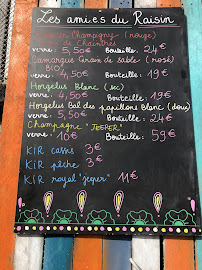 Les amies du Raisin
Saumur Champigny (rouge)
de Chaintres
verre : 5,50€ Bouteille : 24€
Camargue Grain de Sable (rosé)
BIO)
verre : 4,50€ Bouteille : 19€
Horgelus Blanc (sec)
verre : 4,50€ Bouteille : 19€
Horgelus Bal des papillons Blanc (doux)
verre : 5,50€ Bouteille : 24€
Champagne "JEEPER"
verre : 10€ Bouteille : 59€
KIR cassis 3€
KIR pêche 3€
KIR royal "jeeper" 11€